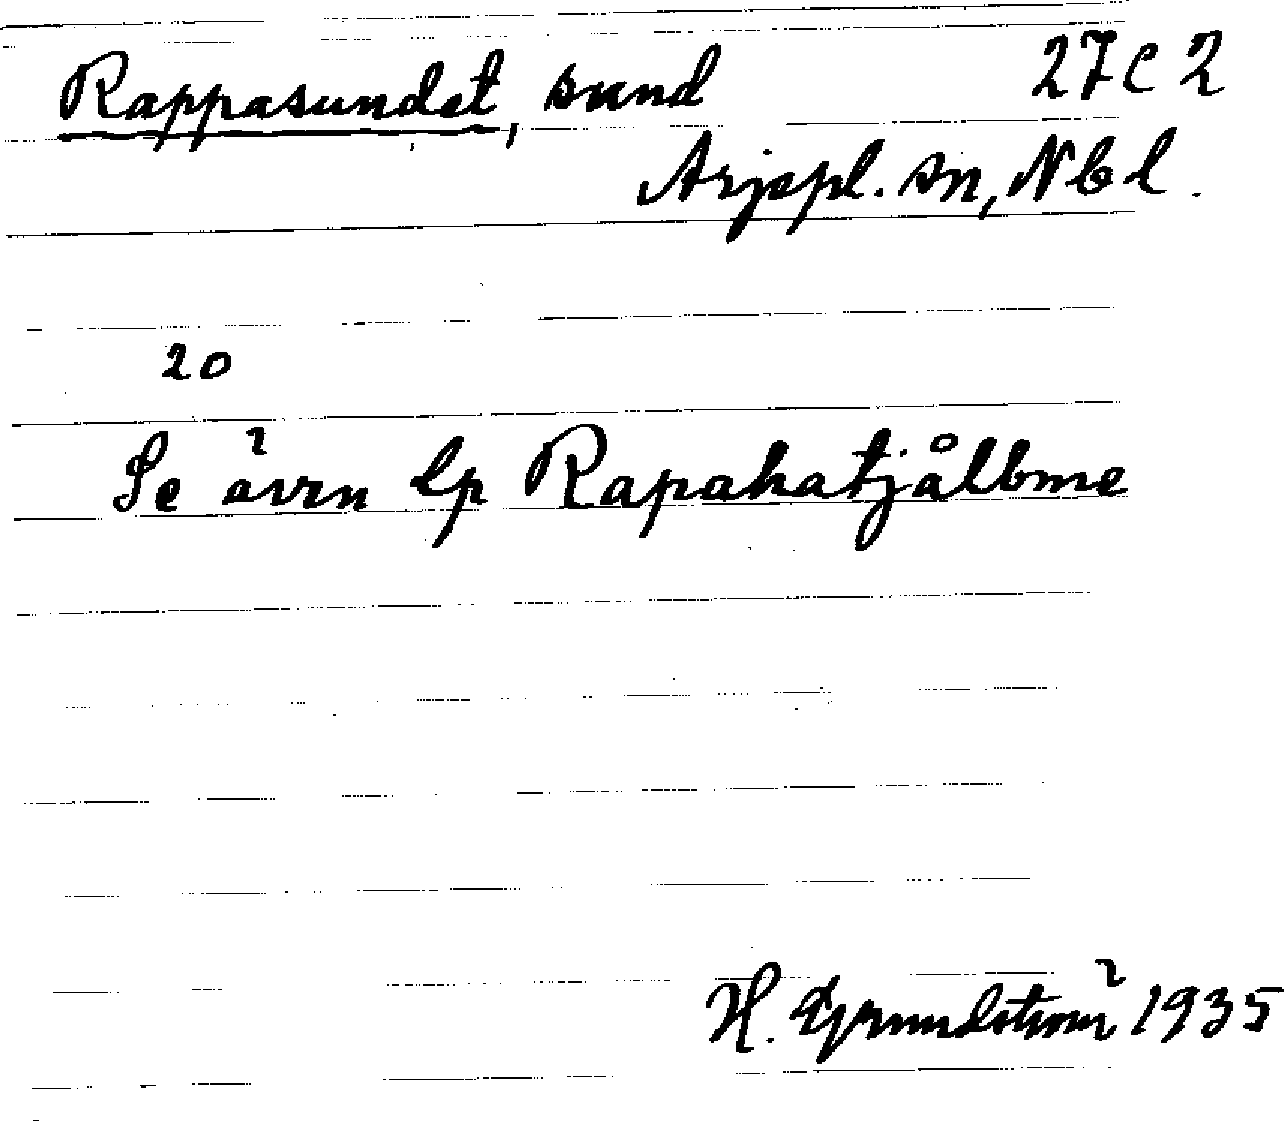 Rappasundet, sund 27 C 2
Arjepl. sn, Nbl.
20
Se även lp Rapakatjålbme
H. Grundström 1935